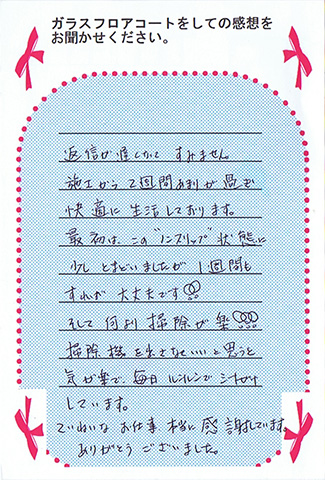 ガラスフロアコートをしての感想を
お聞かせください。
返信が遅くなって すみません
施工から 2週間あまりが過ぎ
快適に 生活しております。
最初は、この"ノンスリップ"状態に
少し とまどいましたが 1週間も
すれば 大丈夫です
そして 何より 掃除が 楽
掃除機を出さないいと思うと
気が楽で、毎日 ルンルンで
しています。
ていねいな お仕事 本当に 感謝しています。
ありがとう ございました。